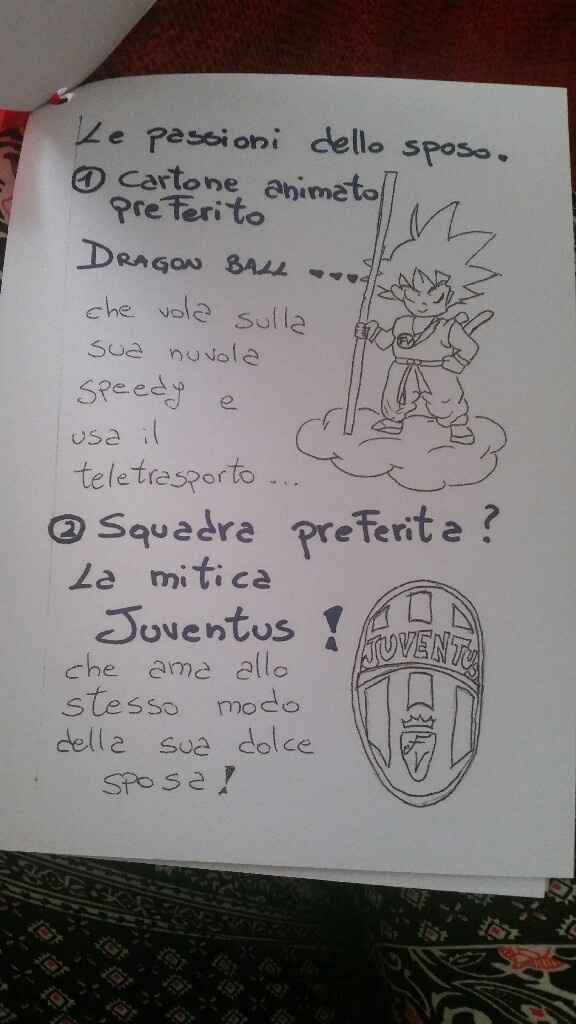 Le passioni dello sposo.
① cartone animato
preferito
DRAGON BALL ....
che vola sulla
sua nuvola
speedy e
usa il
teletrasporto ...
② Squadra preferita?
La mitica
Juventus !
che ama allo
stesso modo
della sua dolce
sposa!
JUVENTUS